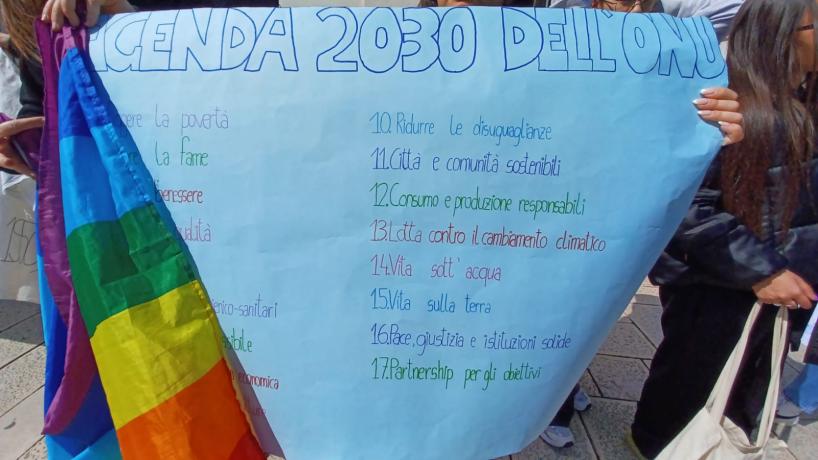 AGENDA 2030 DELL'ONU
la povertà
la fame
benessere
ienico-sanitari
economica
10. Ridurre le disuguaglianze
11. Città e comunità sostenibili
12. Consumo e produzione responsabili
13. Lotta contro il cambiamento climatico
14. Vita sott' acqua
15. Vita sulla terra
16. Pace, giustizia e istituzioni solide
17. Partnership per gli obiettivi